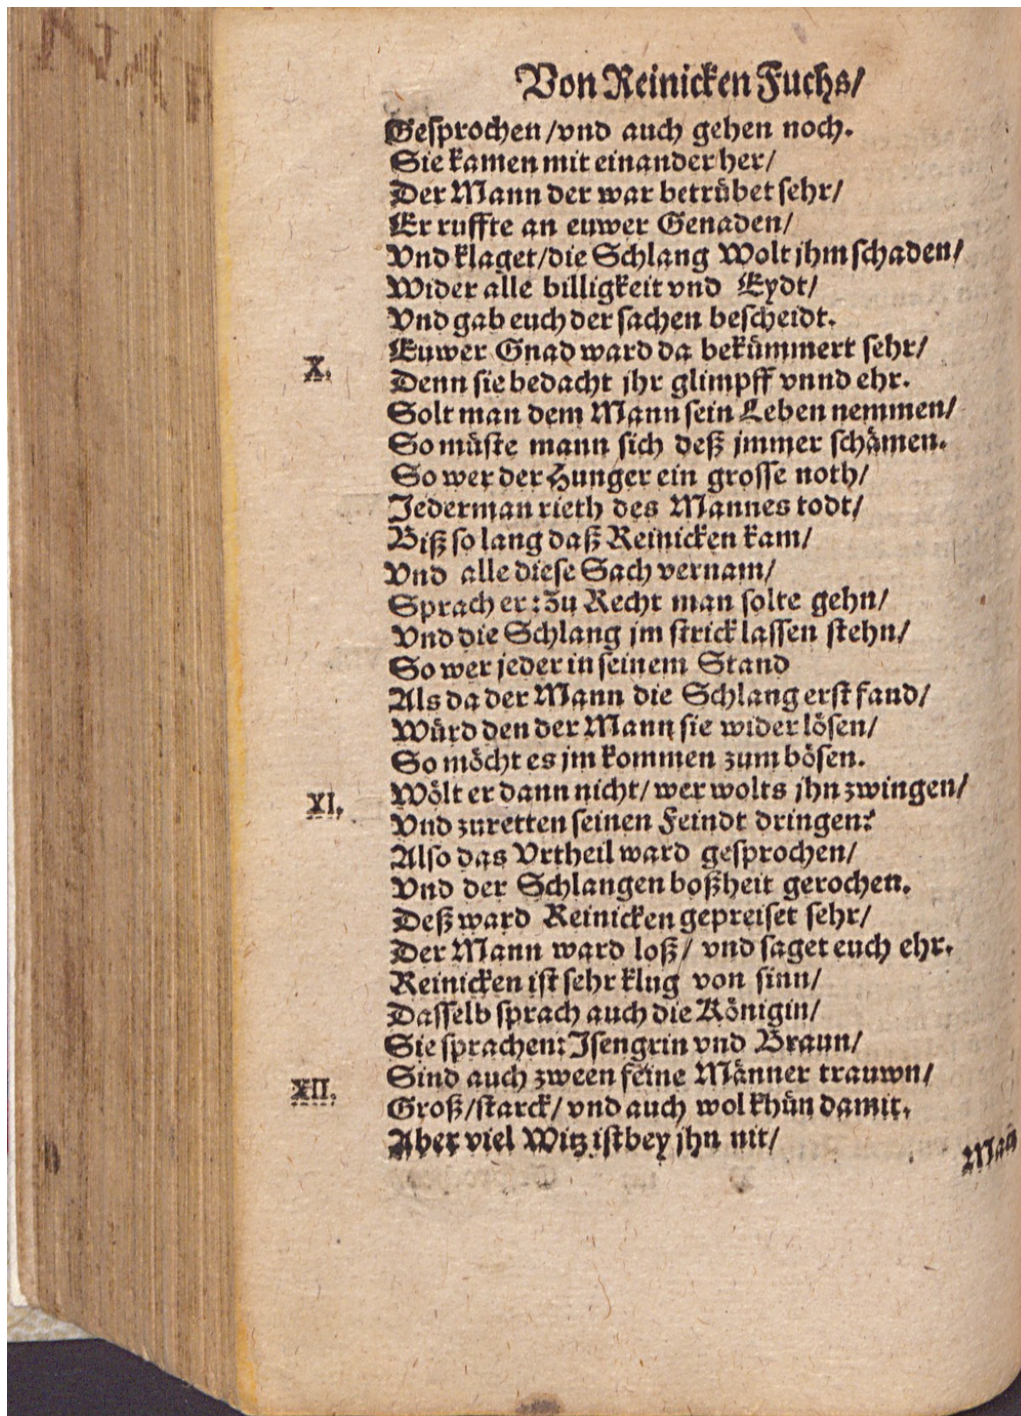 Von Reinicken Fuchs/
Gesprochen/vnd auch gehen noch.
Sie kamen mit einander her/
Der Mann der war betrübet sehr/
Er ruffte an euwer Genaden/
Vnd klaget/die Schlang Wolt jhm schaden/
Wider alle billigkeit vnd Eydt/
Vnd gab euch der sachen bescheidt.
X. Euwer Gnad ward da bekümmert sehr/
Denn sie bedacht jhr glimpff vnnd ehr.
Solt man dem Mann sein Leben nemmen/
So müste mann sich deß jmmer schämen.
So wer der Hunger ein grosse noth/
Jederman rieth des Mannes todt/
Biß so lang daß Reinicken kam/
Vnd alle diese Sach vernam/
Sprach er: Zu Recht man solte gehn/
Vnd die Schlang jm strick lassen stehn/
So wer jeder in seinem Stand
Als da der Mann die Schlang erst fand/
Würd den der Mann sie wider lösen/
So möcht es jm kommen zum bösen.
XI. Wölt er dann nicht/wer wolts jhn zwingen/
Vnd zuretten seinen Feindt dringen?
Also das Vrtheil ward gesprochen/
Vnd der Schlangen boßheit gerochen.
Deß ward Reinicken gepreiset sehr/
Der Mann ward loß/ vnd saget euch ehr.
Reinicken ist sehr klug von sinn/
Dasselb sprach auch die Königin/
Sie sprachen: Isengrin vnd Braun/
XII. Sind auch zween feine Männer trauwn/
Groß/starck/vnd auch wol khün damit.
Aber viel Witz ist bey jhn nit/
Man